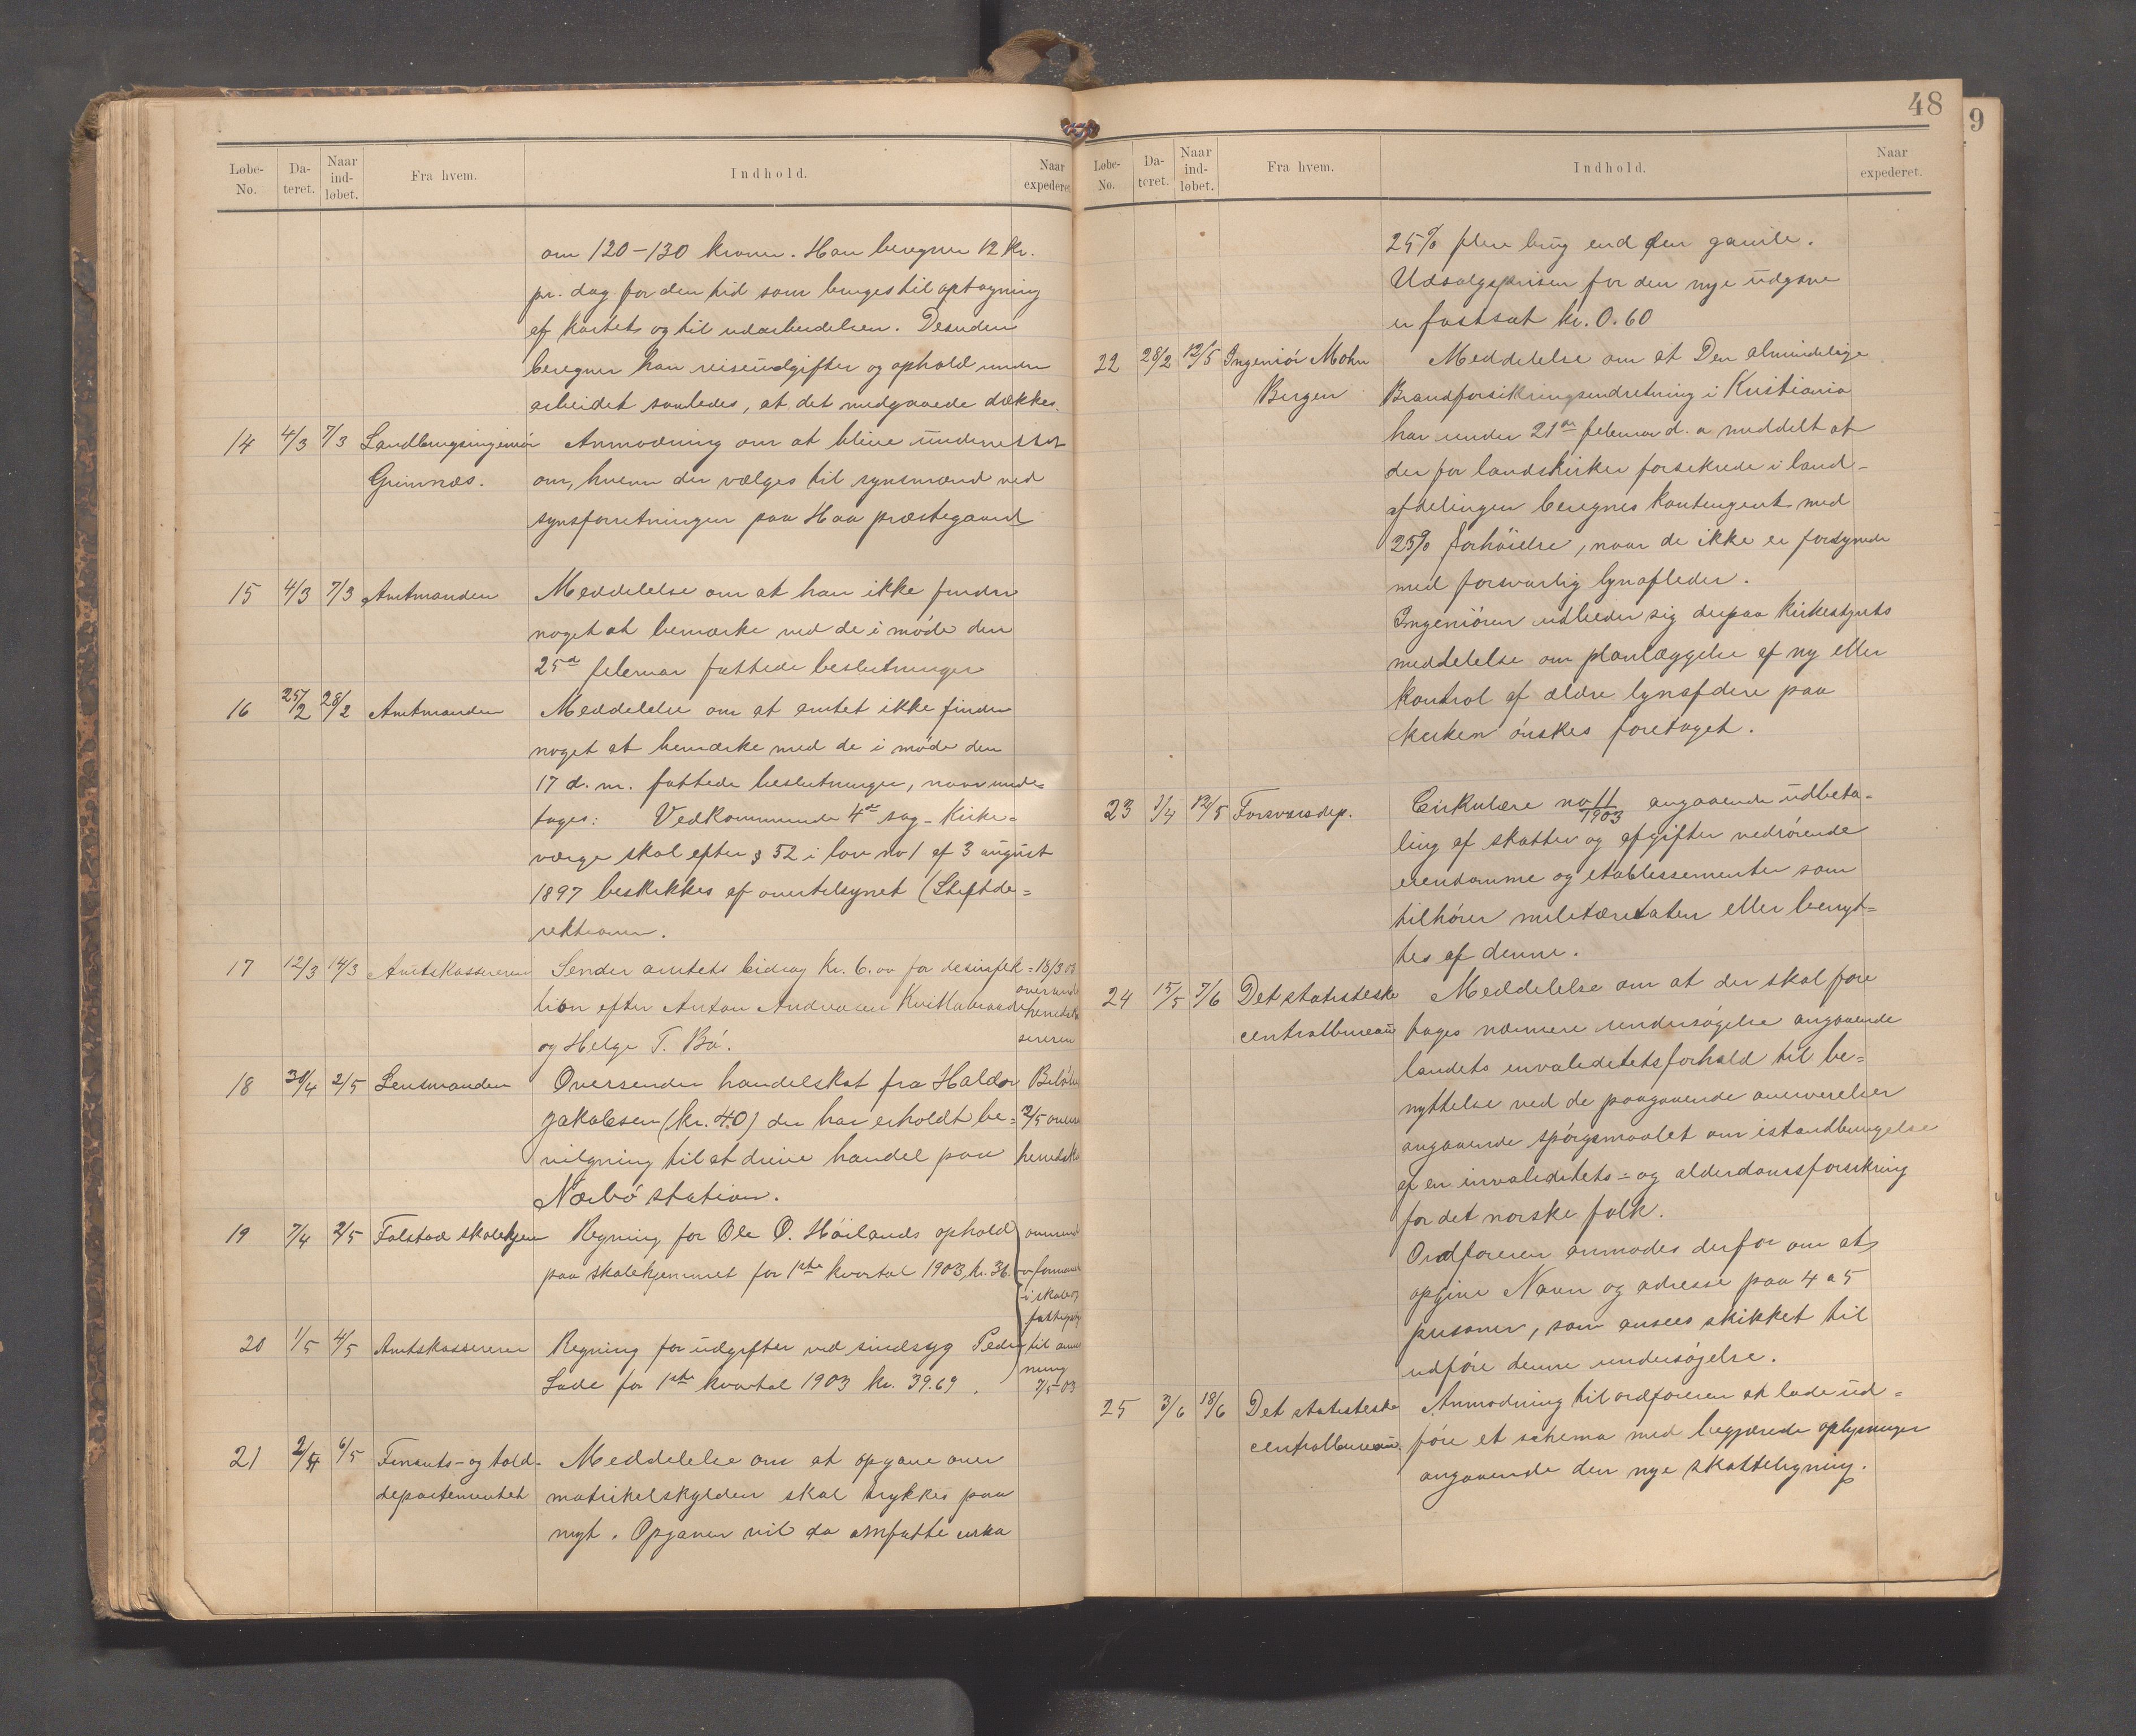 48
9
Løbe-No. Dateret. Naar indløbet. Fra hvem. Indhold. Naar expederet
om 120-130 kroner. Han beregner 12 kr.
pr. dag for den tid som bruges til optagning
af kartet og til udarbeidelsen. Desuden
beregner han reiseudgifter og ophold under
arbeidet saaledes, at det medgaaede dækkes.
14 4/3 7/3 Landbrugsingeniør Anmodning om at blive underrettet
Grimnæs. om, hvem der vælges til synsmænd ved
synsforretningen paa Haa præstegaard
15 4/3 7/3 Amtmanden Meddelelse om at han ikke finder
noget at bemærke ved de i møde den
25de februar fattede beslutninger
16 25/2 28/2 Amtmanden Meddelelse om at amtet ikke finder
noget at bemærke med de i møde den
17 d. m. fattede beslutninger, naar undta-
tages: Vedkommende 4de sag - Kirke=
værge skal efter § 52 i lov no 1 af 3 august
1897 beskikkes af overtilsynet (Stiftdi=
rektionen.
17 12/3 14/3 Amtskassereren Sender amtets bidrag kr. 6.00 for desinfek= 18/3 03
tion efter Anton Andreasen Kvittaberandre oversendt
og Helge T. Bø. herredska
sereren
18 30/4 2/5 Lensmanden Oversender handelskat fra Haldor Beløb
Jakobsen (kr. 40) der har erholdt be= 2/5 overs
vilgning til at drive handel paa herredsk
Nærbø station.
19 7/4 2/5 Falstad skolehjem Regning for Ole O. Høilands ophold oversend
paa skolehjemmet for 1ste kvartal 1903, kr. 36. formand
i skole og
fattigsty
20 1/5 4/5 Amtskassereren Regning for udgifter ved sindsyg Peder til anvis
Lode for 1ste kvartal 1903 kr. 39.69. ning
7/5-03
21 2/4 6/5 Finants- og told- Meddelelse om at opgave over
departementet matrikelskylden skal trykkes paa
nyt. Opgaven vil da omfatte cirka
Løbe-No. Dateret. Naar indløbet. Fra hvem. Indhold. Naar expederet.
25% flere brug end den gamle.
Udsalgsprisen for den nye udgave
er fastsat kr. 0.60
22 28/2 12/5 Ingeniør Mohn Meddelelse om at Den almindelige
Bergen Brandforsikringsindretning i Kristiania
har under 21de februar d. a meddelt at
der for landskirker forsikrede i land-
afdelingen beregnes kontingent med
25% forhøielse, naar de ikke er forsynede
med forsvarlig lynafleder.
Ingeniøren udbeder sig derpaa kirkestyrets
meddelelse om planlæggelse af ny eller
kontrol af ældre lynafdere paa
kirken ønskes foretaget.
23 1/4 12/5 Forsvarsdep. Cirkulære no 11/1903 angaaende udbeta-
ling af skatter og afgifter vedrørende
eiendomme og etablissementer som
tilhører militæretaten eller benyt=
tes af denne.
24 15/5 7/6 Det statistiske Meddelelse om at der skal fore
centralbureau tages nærmere undersøgelse angaaende
landets invaliditetsforhold til be=
nyttelse ved de paagaaende overveielser
angaaende spørgsmaalet om istandbringelse
af en invaliditets- og alderdomsforsikring
for det norske folk.
Ordføreren anmodes derfor om at
opgive Navn og adresse paa 4 a 5
personer, som ansees skikket til
udføre denne undersøgelse.
25 3/6 18/6 Det statistiske Anmodning til ordføreren at lade ud=
centralbureau. føre et schema med begjærede oplysninger
angaaende den nye skatteligning.